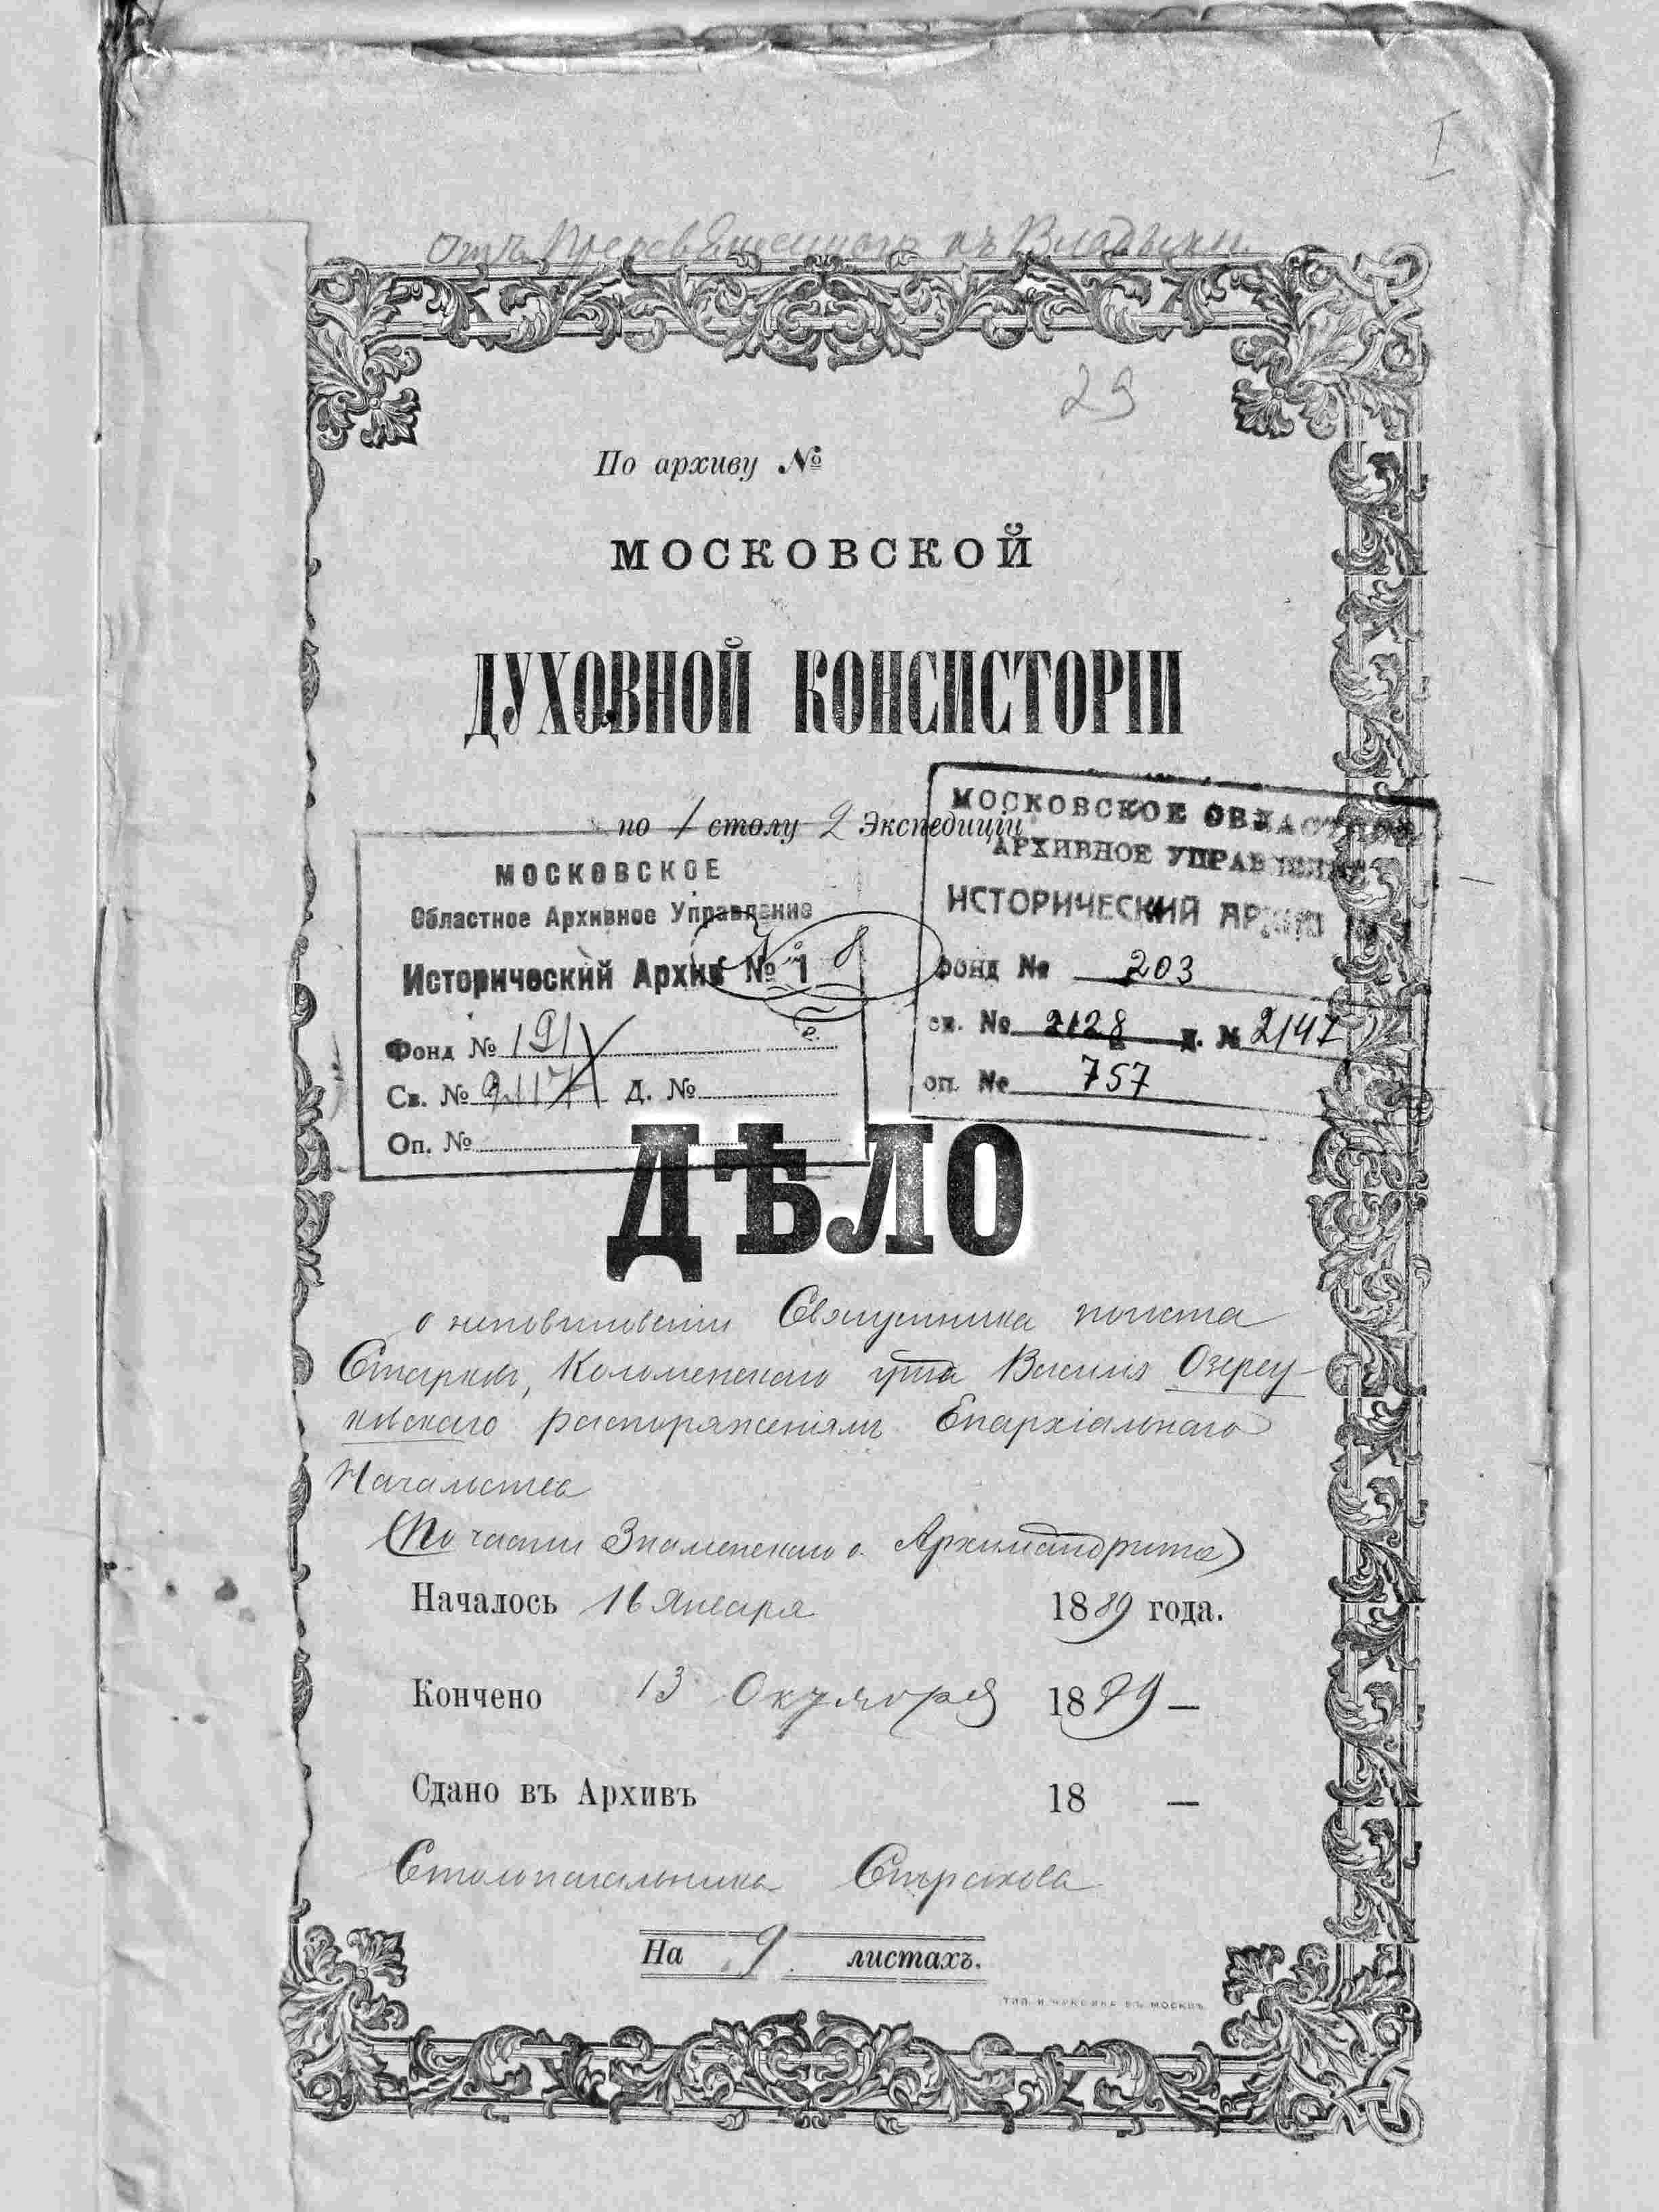 I
29
По архиву №
МОСКОВСКОЙ
ДУХОВНОЙ КОНСИСТОРІИ
по 1 столу 2 Экспедиціи
МОСКОВСКОЕ
Областное Архивное Управление
Исторический Архив № 1
№ 8
Фонд № 191
Св. № Д. №
Оп. №
МОСКОВСКОЕ ОБЛАСТНОЕ
АРХИВНОЕ УПРАВЛЕНИЕ
ИСТОРИЧЕСКИЙ АРХИВ
Фонд № 203
св. № 2128 д. № 2147
оп. № 757
ДѢЛО
о неповиновеніи Священника погоста
Старки, Коломенскаго уѣзда Василія Озерец-
ковскаго распоряженіямъ Епархіальнаго
Начальства
(По части Знаменскаго о. Архимандрита)
Началось 16 Января 1889 года.
Кончено 13 Октября 1889 —
Сдано въ Архивъ 18 —
Столоначальника Страхова
На 9 листахъ.